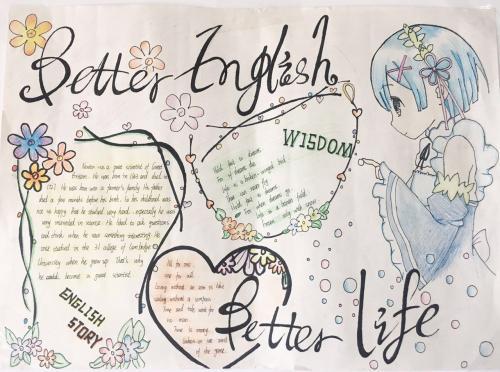 Better English
WISDOM
Hold fast to dreams
For if dreams die
Life is a broken-winged bird
That can never fly
Hold fast to dreams
For when dreams go
Life is a barren field
Frozen only with snow
Newton was a great scientist of Great
England. He was born in 1643 and died in
He was born in a farmer's family. His father
died a few months before his birth. In his childhood was
not so happy that he studied very hard, especially he was
very interested in science. He liked to ask questions
and think when he saw something interesting. He
once studied in the college of Cambridge
University when he grew up. That's why
he could become a great scientist.
ENGLISH
STORY
All for one,
one for all.
Living without an aim is like
sailing without a compass.
Time and tide wait for
no man.
Time is money.
of the game.
Better life